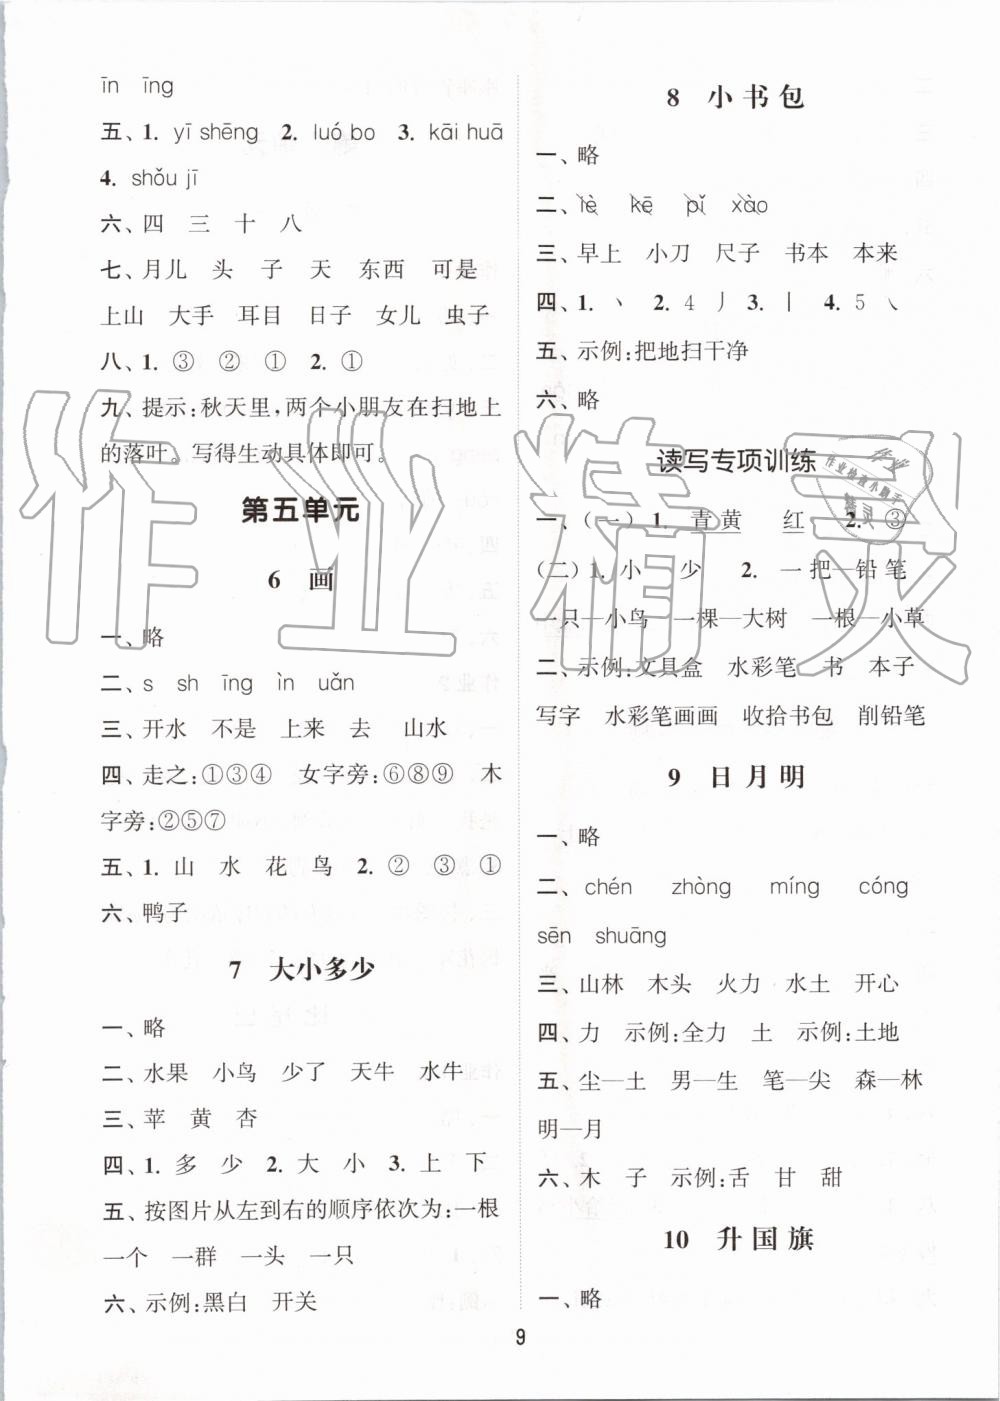 īn　īng
五、1. yī shēng　2. luó bo　3. kāi huā
4. shǒu jī
六、四　三　十　八
七、月儿　头　子　天　东西　可是
上山　大手　耳目　日子　女儿　虫子
八、1. ③　②　①　2. ①
九、提示:秋天里,两个小朋友在扫地上
的落叶。写得生动具体即可。
第五单元
6　画
一、略
二、s　sh　īng　ìn　uǎn
三、开水　不是　上来　去　山水
四、走之:①③④　女字旁:⑥⑧⑨　木
字旁:②⑤⑦
五、1. 山　水　花　鸟　2. ②　③　①
六、鸭子
7　大小多少
一、略
二、水果　小鸟　少了　天牛　水牛
三、苹　黄　杏
四、1. 多　少　2. 大　小　3. 上　下
五、按图片从左到右的顺序依次为:一根
一个　一群　一头　一只
六、示例:黑白　开关
8　小书包
一、略
二、iè　kē　pǐ　xào
三、早上　小刀　尺子　书本　本来
四、1. 丶　2. 4　丿　3. 丨　4. 5　㇏
五、示例:把地扫干净
六、略
读写专项训练
一、(一) 1. 青 黄　红　2. ③
(二) 1. 小　少　2. 一把—铅笔
一只—小鸟　一棵—大树　一根—小草
二、示例:文具盒　水彩笔　书　本子
写字　水彩笔画画　收拾书包　削铅笔
9　日月明
一、略
二、chén　zhòng　míng　cóng
sēn　shuāng
三、山林　木头　火力　水土　开心
四、力　示例:全力　土　示例:土地
五、尘—土　男—生　笔—尖　森—林
明—月
六、木　子　示例:舌　甘　甜
10　升国旗
一、略
9
作业精灵
作业
作业检查小助手
精灵